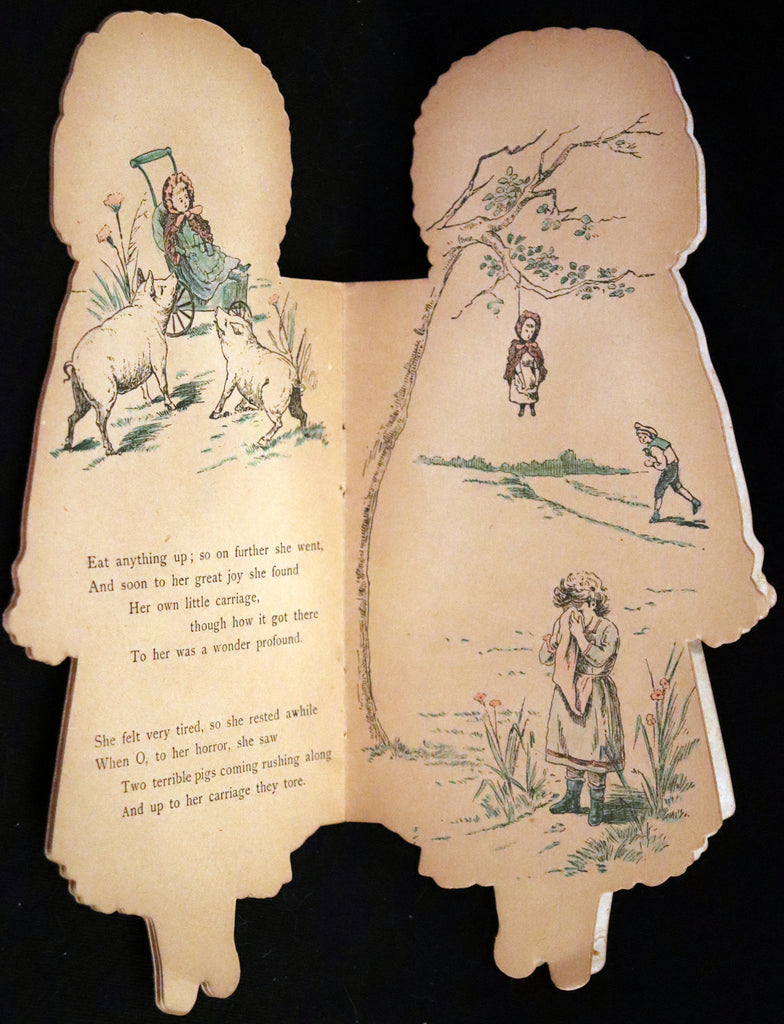 Eat anything up; so on further she went,
And soon to her great joy she found
Her own little carriage,
though how it got there
To her was a wonder profound.
She felt very tired, so she rested awhile
When O, to her horror, she saw
Two terrible pigs coming rushing along
And up to her carriage they tore.